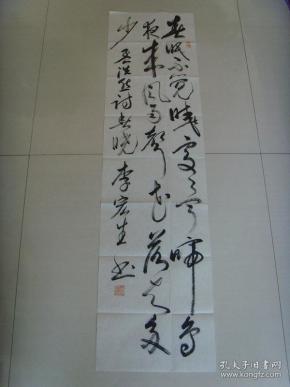 春眠不觉晓处处闻啼鸟
夜来风雨声花落知多
少 孟浩然诗春晓 李宏生书
孔夫子旧书网